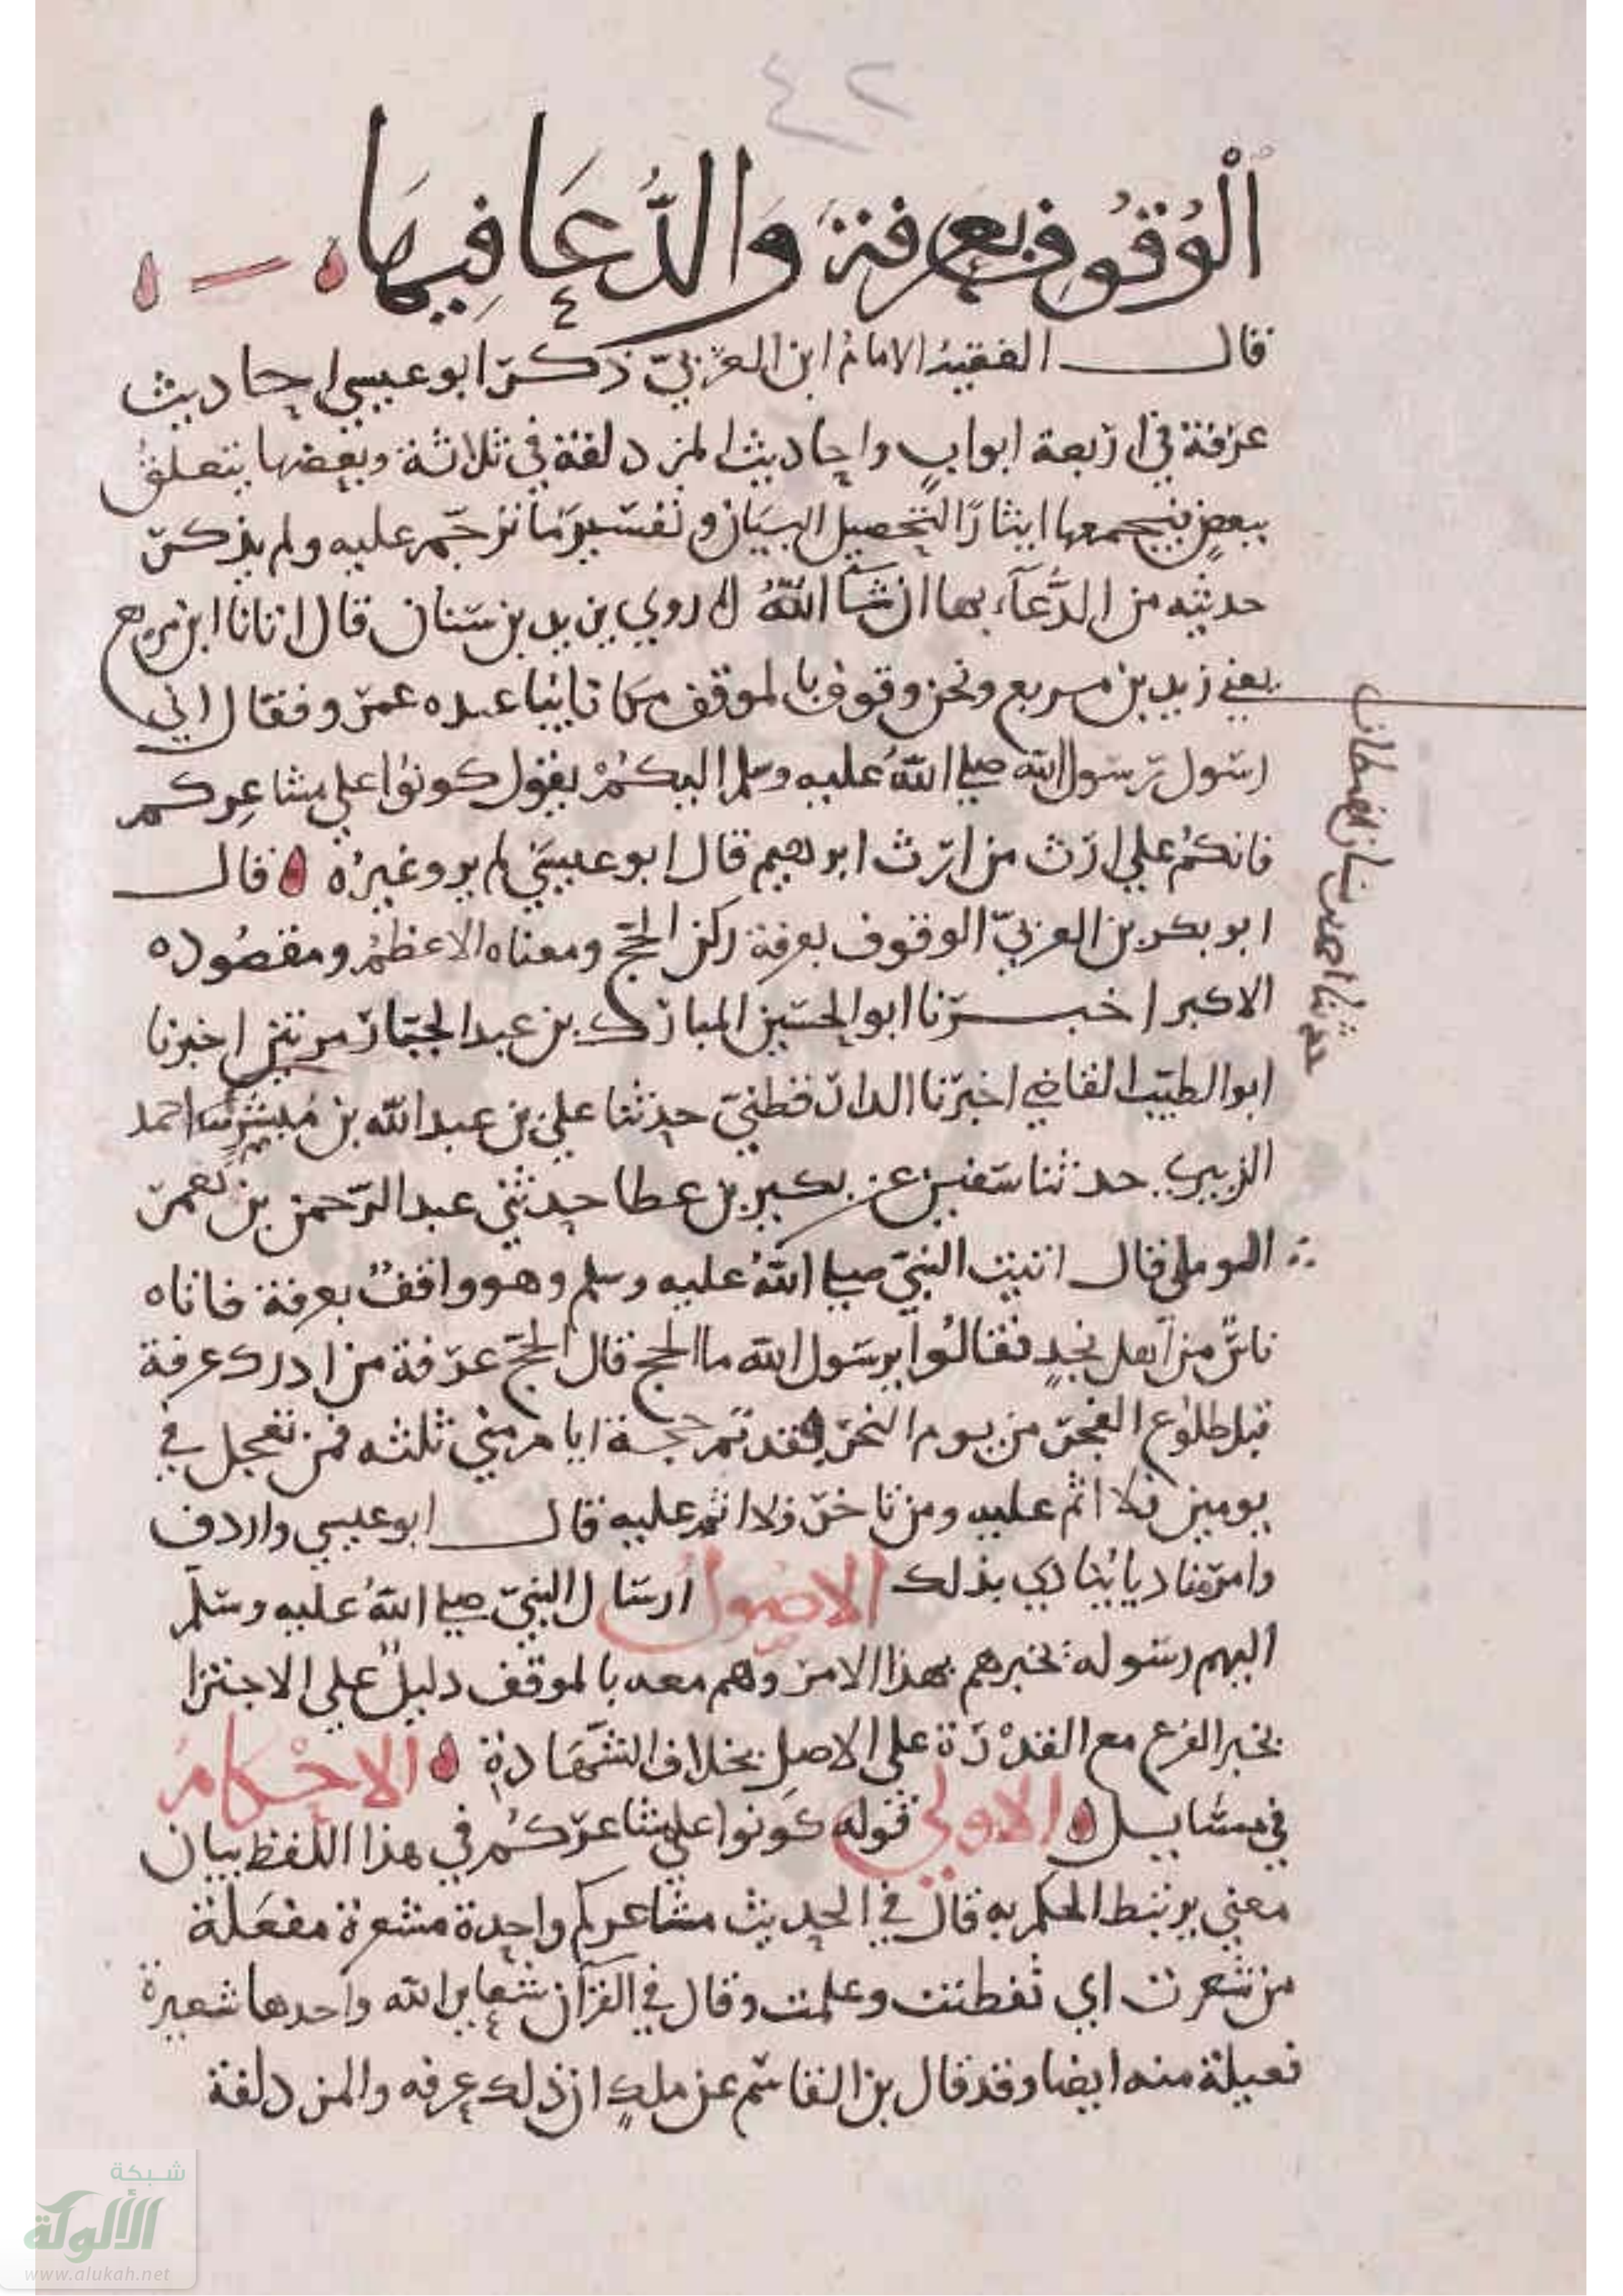 ٤٢
اَلْوُقُوف بعَرفة وَالدُّعَا فِيهَا
قال الفقيه الامامُ ابن العربيّ ذكر ابو عيسي احاديث
عرفة في اربعة ابوابٍ واحاديث المزدلفة في ثلاثة وبعضها يتعلقُ
ببعضٍ فنجمعها ايثارًا لتحصيل البيان وتفسير ما ترجم عليه ولم يذكر
حديثه من الدُّعآء بها ان شآ اللهُ روي يزيد بن سنان قال اتانا ابن مربع
يعني زيد بن مربع ونحن وقوف بالموقف مكانا يباعده عمرو فقال اني
رسول رسول الله صلي اللهُ عليه وسلم اليكُمْ يقول كونوا علي مشاعِركم
فانكمُ علي ارث من ارث ابرهيم قال ابو عيسَي لم يرو غيرُه قال
ابو بكر بن العربيّ الوقوف بعرفة ركن الحج ومعناه الاعظمُ ومقصُوده
الاكبر اخبرنا ابو الحسين المبارك بن عبد الجبار مرتين اخبرنا
ابو الطيّب القاضي اخبرنا الدارقطنيّ حدثنا علي بن عبد الله بن مُبشرٍ احمد
حدثنا احمد بن سنان القطان
الزبيري حدثنا سفين عن بكير بن عطا حدثني عبد الرّحمن بن يَعمر
قال اتيت النبيّ صلي اللهُ عليه وسلم وهو واقفٌ بعرفة فاتاه
ناسٌ من اهل نجدٍ فقالُوا يرسول الله ما الحج قال الحجّ عرفة من ادرك عرفة
قبل طلوع الفجر من يوم النحر فقد تم حجه ايام مني ثلثه فمن تعجل في
يومين فلا اثم عليه ومن تاخر فلا اثم عليه قال ابو عيسي واردف
وامر مناديا ينادي بذلك الاصُول ارسال النبيّ صلي اللهُ عليه وسلم
اليهم رسوله يخبرهم بهذا الامر وهم معه بالموقف دليلٌ علي الاجتزا
بخبر الفرع مع القدْرة علي الاصل بخلاف الشّهَادةِ الاحْكامُ
في مسايل الاولي قوله كَونوا علي مشاعركُم في هذا اللفظ بيان
معني يرتبط الحكم به قال في الحديث مشاعركم واحدة مشعرة مفعَلة
من شعرت اي تفطنت وعلمت وقال في القرآن شعاير الله واحدها شعيرة
فعيلة منه ايضا وقد قال بن القاسم عن ملكٍ ان ذلك عرفه والمزدلفة
شبكة
الألوكة
www.alukah.net